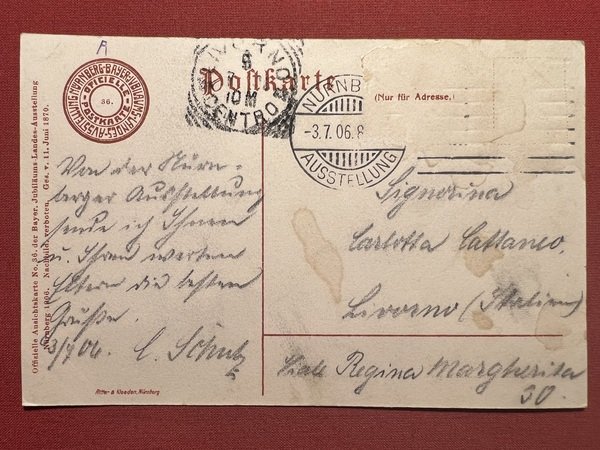 R
NÜRNBERG-BAYER. JUBILÄUMS-LANDES-AUSSTELLUNG
OFFIZIELLE POSTKARTE
36.
LIVORNO
CENTRO
10 M
Postkarte
(Nur für Adresse.)
NÜRNB
-3.7.06.8
AUSSTELLUNG
Offizielle Ansichtskarte No. 36. der Bayer. Jubiläums-Landes-Ausstellung
Nürnberg 1906. Nachbild. verboten. Ges. v. 11. Juni 1870.
Von der Nürn-
berger Ausstellung
sende ich Ihnen
u. Ihren werten
Eltern die besten
Grüße.
3/7 06. C. Schutz
Signorina
Carlotta Cattaneo.
Livorno (Italien)
Viale Regina Margherita
30.
Ritter & Kloeden, Nürnberg